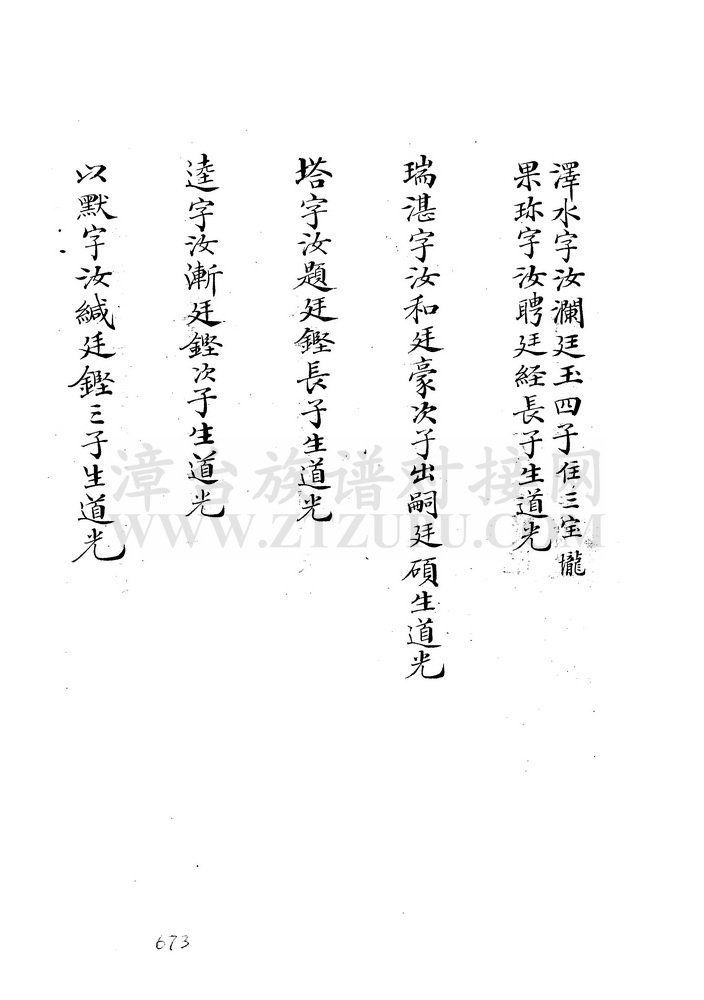 澤水字汝瀾廷玉四子住三宝壠
果珎字汝聘廷経長子生道光
瑞湛字汝和廷豪次子出嗣廷碩生道光
塔字汝題廷鏗長子生道光
逵字汝漸廷鏗次子生道光
以默字汝緘廷鏗三子生道光
漳台族谱对接网
WWW.ZTZUPU.COM
673